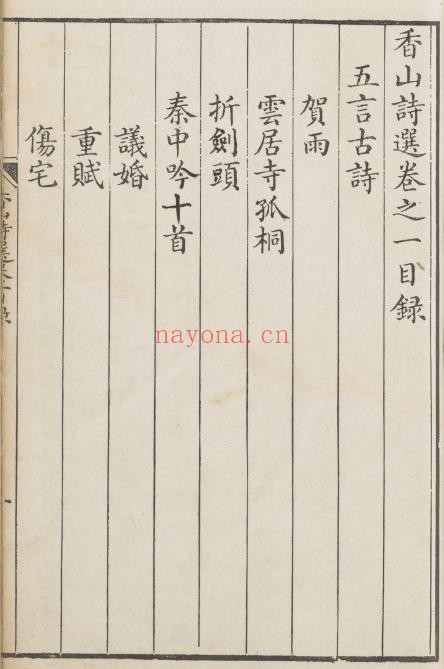 香山詩選卷之一目録
五言古詩
賀雨
雲居寺孤桐
折劍頭
秦中吟十首
議婚
重賦
傷宅
nayona.cn